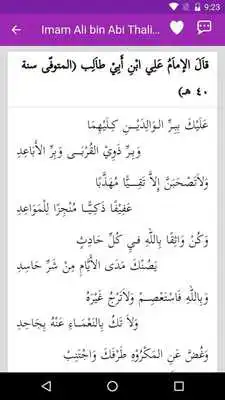 9:23
Imam Ali bin Abi Thali...
قَالَ الإِمَامُ عَلِي ابْنِ أَبِيْ طَالِب (المتوفّى سنة
٤٠ هـ)
عَلَيْكَ بِبِرِّ الوَالِدَيْنِ كِلَيْهِمَا
وَبِرِّ ذَوِيْ القُرْبَى وَبِرِّ الأَبَاعِدِ
وَلاَتَصْحَبَنَّ إِلاَّ تَقِيًّا مُهَذَّبًا
عَفِيْفًا ذَكِيًّا مُنْجِزًا لِلْمَوَاعِدِ
وَكُنْ وَاثِقًا بِاللَّهِ فِي كُلِّ حَادِثٍ
يَصُنْكَ مَدَى الأَيَّامِ مِنْ شَرِّ حَاسِدِ
وَبِاللَّهِ فَاسْتَعْصِمْ وَلاَتَرْجُ غَيْرَهُ
وَلاَ تَكُ بِالنَّعْمَاءِ عَنْهُ بِجَاحِدِ
وَغُضَّ عَنِ المَكْرُوْهِ طَرْفَكَ وَاجْتَنِبْ